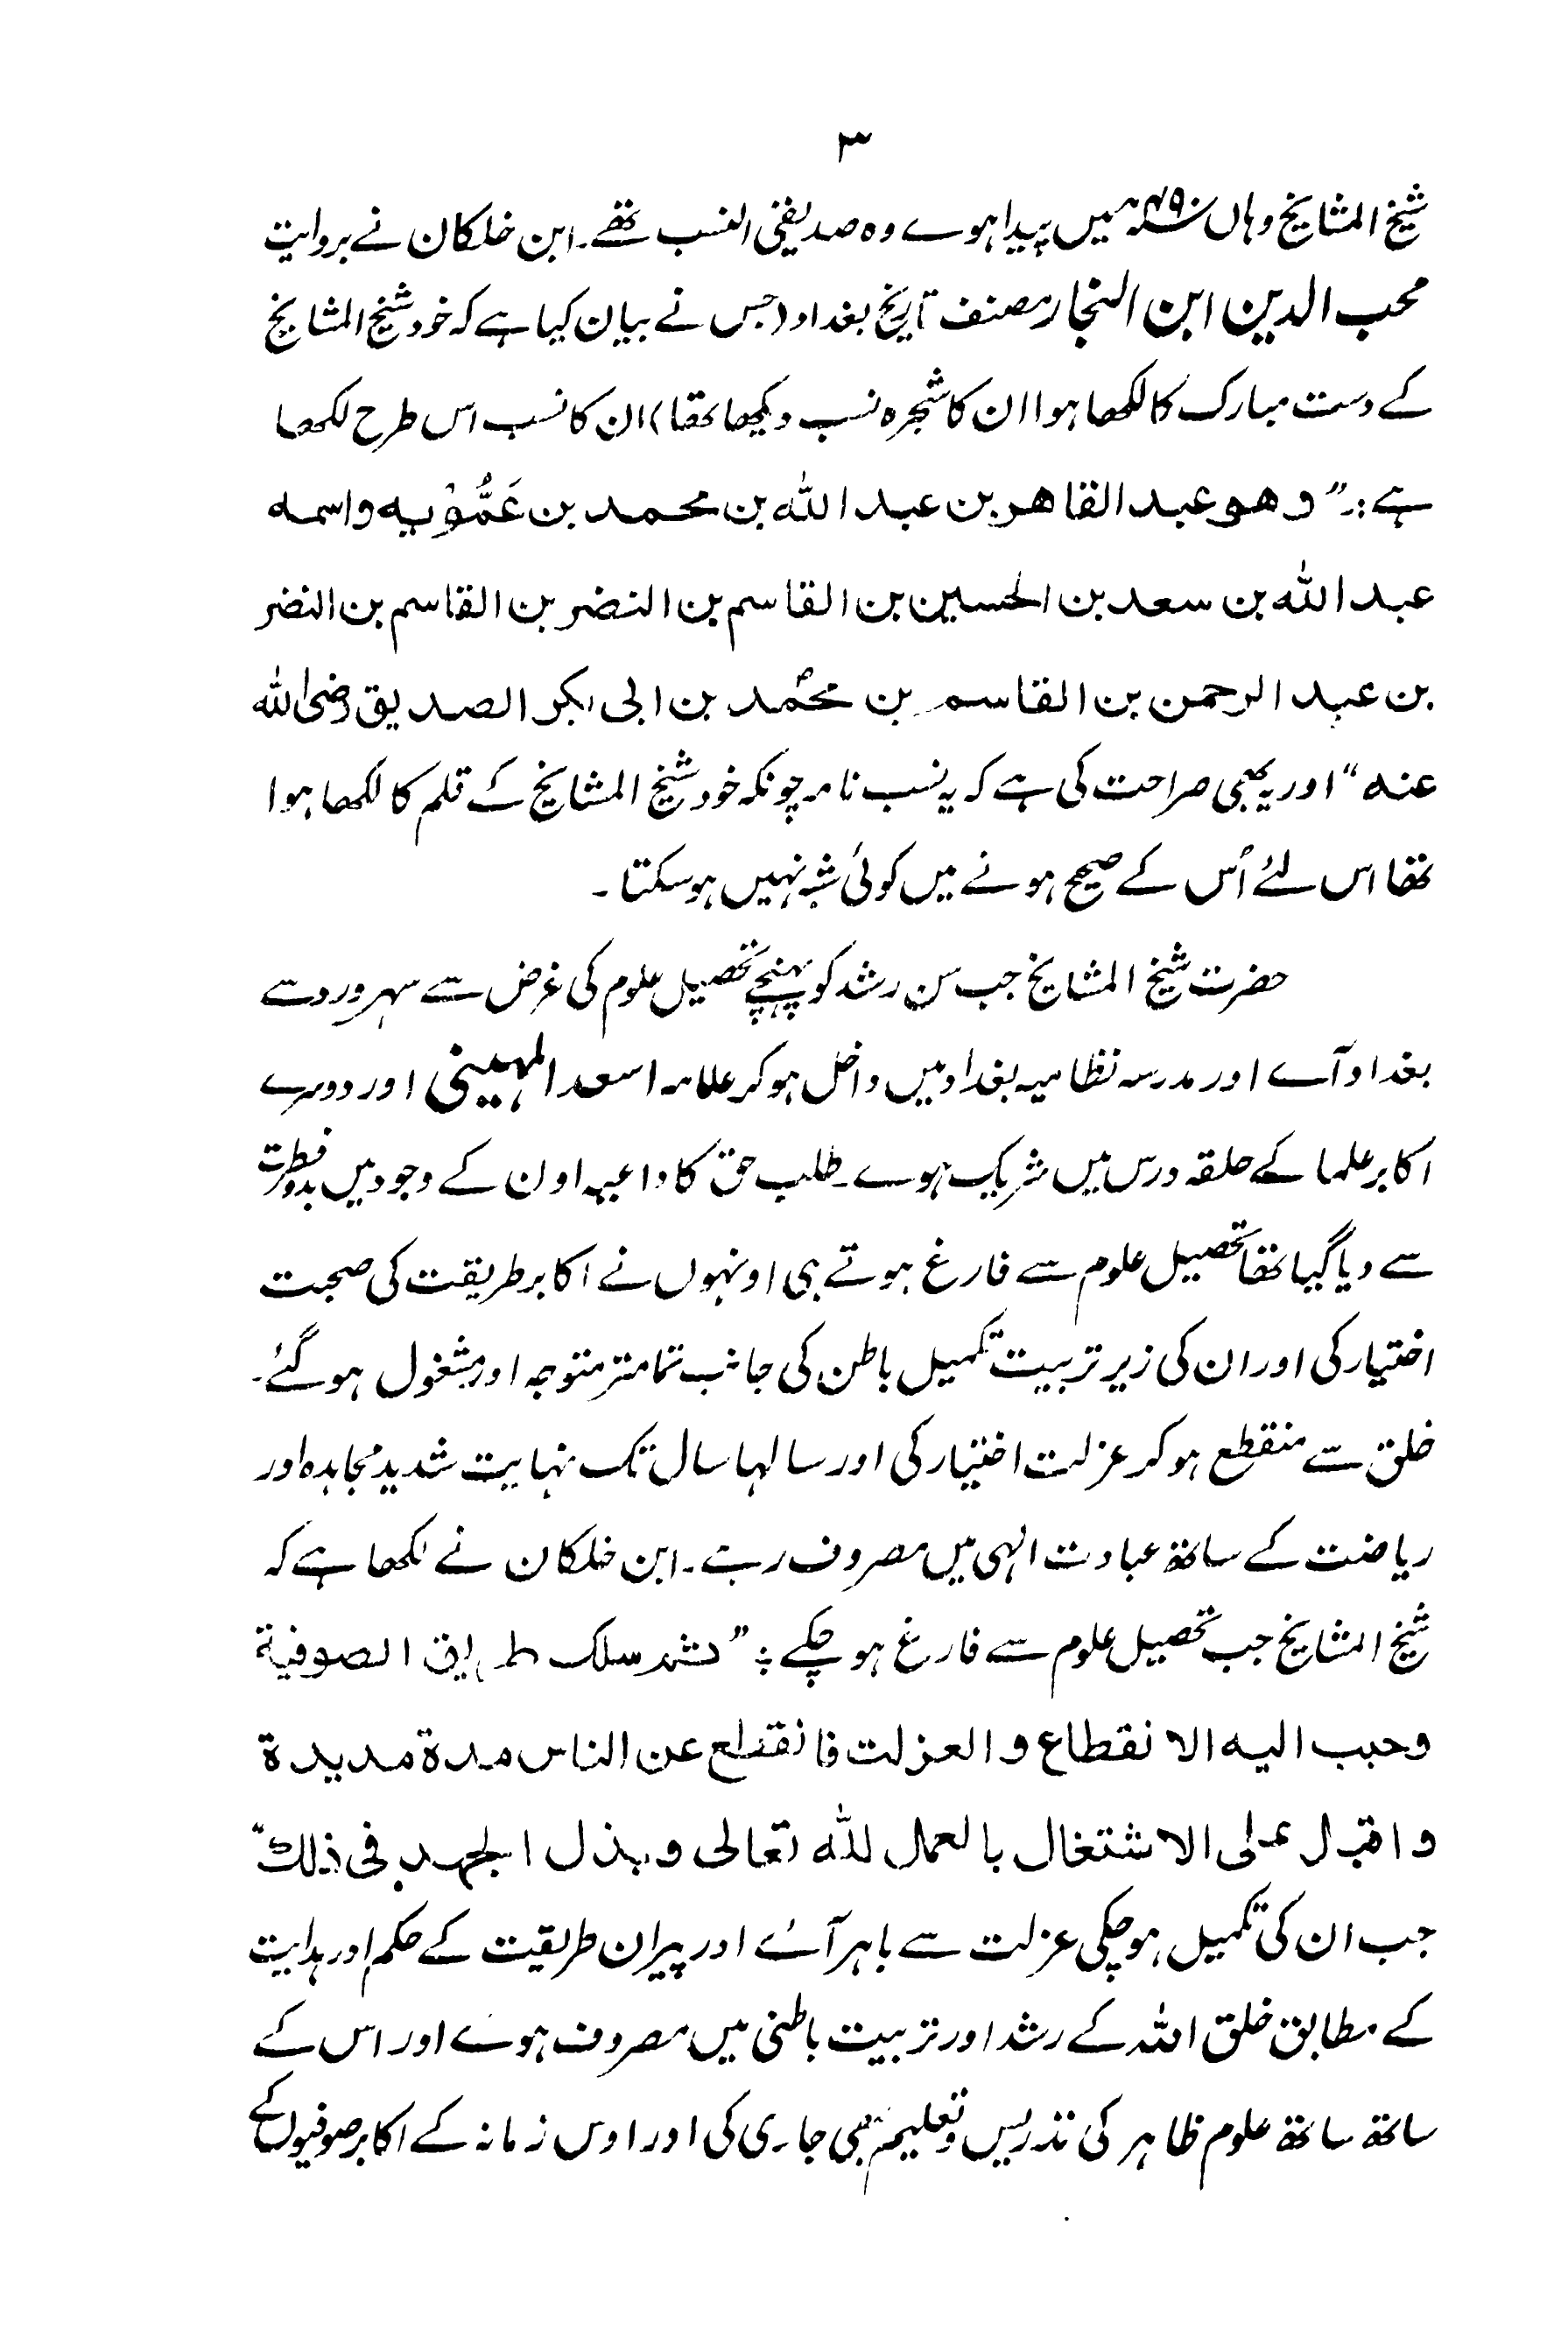 ۳
شیخ المشایخ وہاں سنہ ۴۹۰ھ میں پیدا ہوے وہ صدیقی النسب تھے۔ ابن خلکان نے بروایت
محب الدین ابن النجار مصنف تاریخ بغداد (جس نے بیان کیا ہے کہ خود شیخ المشایخ
کے دست مبارک کا لکھا ہوا ان کا شجرہ نسب دیکھا تھا) ان کا نسب اس طرح لکھا
ہے:۔ "وھو عبد القاھر بن عبد اللہ بن محمد بن عَمُّوْیہ واسمہ
عبد اللہ بن سعد بن الحسین بن القاسم بن النضر بن القاسم بن النضر
بن عبد الرحمن بن القاسم بن محمد بن ابی بکر الصدیق رضی اللہ
عنہ" اور یہ بھی صراحت کی ہے کہ یہ نسب نامہ چونکہ خود شیخ المشایخ کے قلم کا لکھا ہوا
تھا اس لئے اُس کے صحیح ہونے میں کوئی شبہ نہیں ہوسکتا۔
حضرت شیخ المشایخ جب سن رشد کو پہنچے تحصیل علوم کی غرض سے سہرورد سے
بغداد آے اور مدرسہ نظامیہ بغداد میں داخل ہوکر علامہ اسعد المہینی اور دوسرے
اکابر علما کے حلقہ درس میں شریک ہوے۔ طلب حق کا داعیہ اون کے وجود میں بدو فطرت
سے دیا گیا تھا تحصیل علوم سے فارغ ہوتے ہی اونہوں نے اکابر طریقت کی صحبت
اختیار کی اور ان کی زیر تربیت تکمیل باطن کی جانب تمامتر متوجہ اور مشغول ہوگئے۔
خلق سے منقطع ہوکر عزلت اختیار کی اور سالہا سال تک نہایت شدید مجاہدہ اور
ریاضت کے ساتھ عبادت الٰہی میں مصروف رہے۔ ابن خلکان نے لکھا ہے کہ
شیخ المشایخ جب تحصیل علوم سے فارغ ہوچکے :۔ "ثم سلک طریق الصوفیة
وحبب الیہ الانقطاع والعزلت فانقطع عن الناس مدة مدیدة
واقبل علی الاشتغال بالعمل للہ تعالی وبذل الجھد فی ذلك"
جب ان کی تکمیل ہوچکی عزلت سے باہر آئے اور پیران طریقت کے حکم اور ہدایت
کے مطابق خلق اللہ کے رشد اور تربیت باطنی میں مصروف ہوے اور اس کے
ساتھ ساتھ علوم ظاہر کی تدریس وتعلیم بھی جاری کی اور اوس زمانہ کے اکابر صوفیوں کے